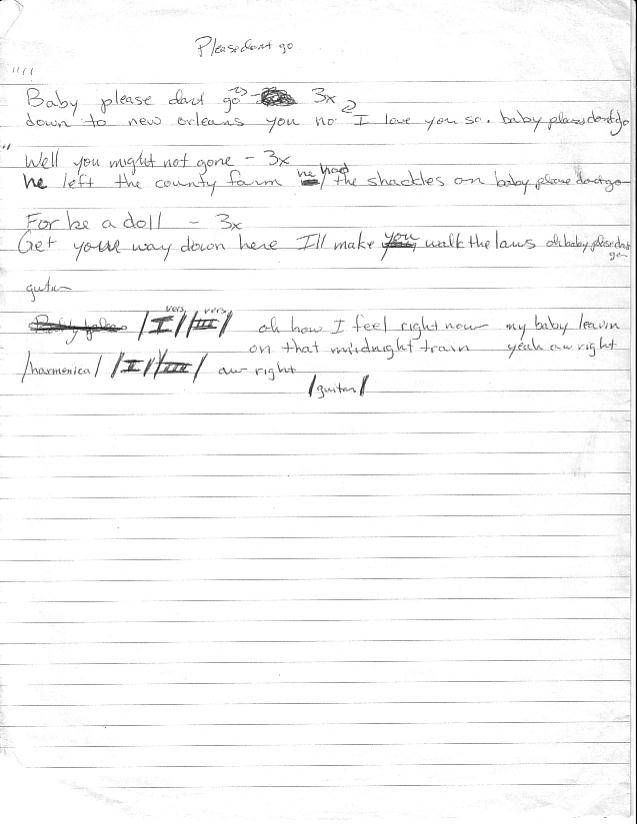 Please dont go
Baby please dont go 3x
down to new orleans you no I love you so. baby please dont go
Well you might not gone - 3x
he left the county farm he had the shackles on baby please dont go
For be a doll - 3x
Get your way down here Ill make you walk the laws oh baby please dont go
guitar
vers vers
/I/ /III/ oh how I feel right now my baby leavin
on that midnight train yeah aw right
/harmonica/ /I/ /III/ aw right
/guitar/